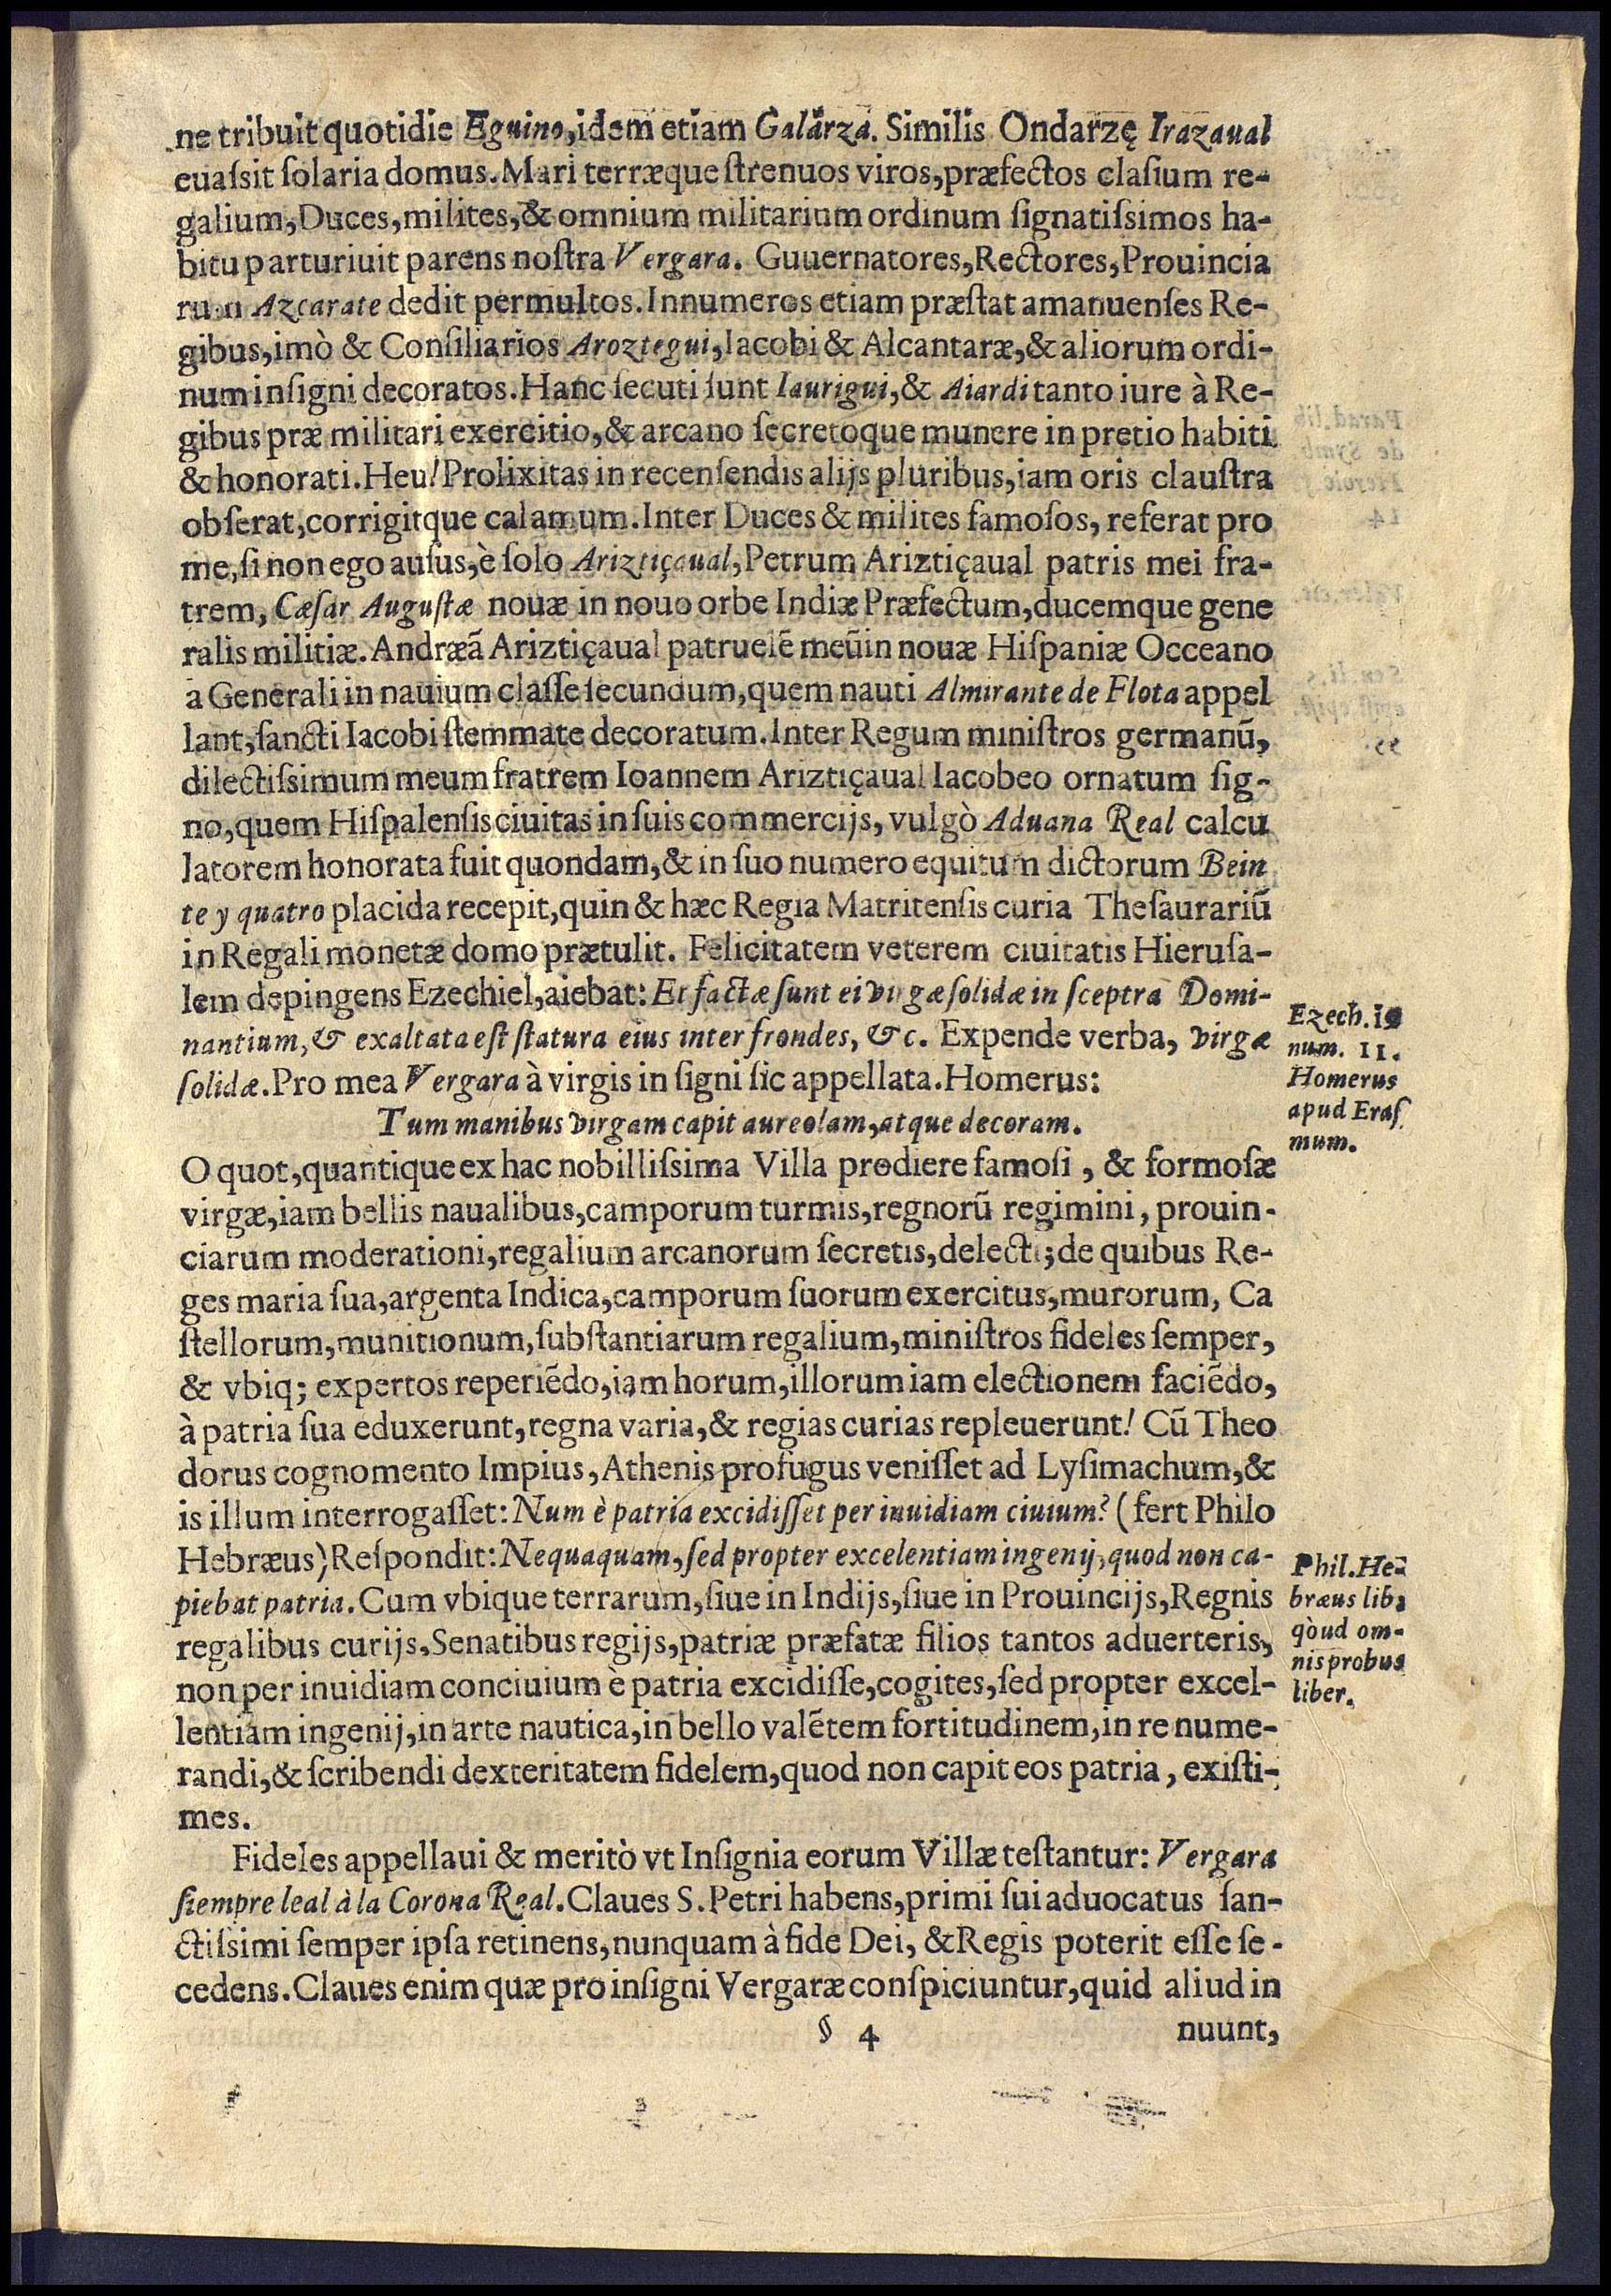 ne tribuit quotidie Eguino, idem etiam Galarza. Similis Ondarzę Irazaual
euaſsit ſolaria domus. Mari terræque ſtrenuos viros, præfectos claſium re-
galium, Duces, milites, & omnium militarium ordinum ſignatiſsimos ha-
bitu parturiuit parens noſtra Vergara. Guuernatores, Rectores, Prouincia
rum Azcarate dedit permultos. Innumeros etiam præſtat amanuenſes Re-
gibus, imò & Conſiliarios Aroztegui, Iacobi & Alcantaræ, & aliorum ordi-
num inſigni decoratos. Hanc ſecuti ſunt Iaurigui, & Aiardi tanto iure à Re-
gibus præ militari exercitio, & arcano ſecretoque munere in pretio habiti
& honorati. Heu! Prolixitas in recenſendis alijs pluribus, iam oris clauſtra
obſerat, corrigitque calamum. Inter Duces & milites famoſos, referat pro
me, ſi non ego auſus, è ſolo Ariztiçaual, Petrum Ariztiçaual patris mei fra-
trem, Cæſar Auguſtæ nouæ in nouo orbe Indiæ Præfectum, ducemque gene
ralis militiæ. Andræã Ariztiçaual patruelẽ meũ in nouæ Hiſpaniæ Occeano
a Generali in nauium claſſe ſecundum, quem nauti Almirante de Flota appel
lant, ſancti Iacobi ſtemmate decoratum. Inter Regum miniſtros germanũ,
dilectiſsimum meum fratrem Ioannem Ariztiçaual Iacobeo ornatum ſig-
no, quem Hiſpalenſis ciuitas in ſuis commercijs, vulgò Aduana Real calcu
latorem honorata fuit quondam, & in ſuo numero equitum dictorum Bein
te y quatro placida recepit, quin & hæc Regia Matritenſis curia Theſaurariũ
in Regali monetæ domo prætulit. Felicitatem veterem ciuitatis Hieruſa-
lem depingens Ezechiel, aiebat: Et factæ ſunt ei virgæ ſolidæ in ſceptra Domi-
nantium, & exaltata eſt ſtatura eius inter frondes, &c. Expende verba, virgæ
ſolidæ. Pro mea Vergara à virgis in ſigni ſic appellata. Homerus:
Ezech. 19
num. 11.
Homerus
apud Eraſ
mum.
Tum manibus virgam capit aureolam, atque decoram.
O quot, quantique ex hac nobilliſsima Villa prodiere famoſi, & formoſæ
virgæ, iam bellis naualibus, camporum turmis, regnorũ regimini, prouin-
ciarum moderationi, regalium arcanorum ſecretis, delecti; de quibus Re-
ges maria ſua, argenta Indica, camporum ſuorum exercitus, murorum, Ca
ſtellorum, munitionum, ſubſtantiarum regalium, miniſtros fideles ſemper,
& vbiq; expertos reperiẽdo, iam horum, illorum iam electionem faciẽdo,
à patria ſua eduxerunt, regna varia, & regias curias repleuerunt! Cũ Theo
dorus cognomento Impius, Athenis profugus veniſſet ad Lyſimachum, &
is illum interrogaſſet: Num è patria excidiſſet per inuidiam ciuium? (fert Philo
Hebræus) Reſpondit: Nequaquam, ſed propter excelentiam ingenij, quod non ca-
piebat patria. Cum vbique terrarum, ſiue in Indijs, ſiue in Prouincijs, Regnis
regalibus curijs, Senatibus regijs, patriæ præfatæ filios tantos aduerteris,
non per inuidiam conciuium è patria excidiſſe, cogites, ſed propter excel-
lentiam ingenij, in arte nautica, in bello valẽtem fortitudinem, in re nume-
randi, & ſcribendi dexteritatem fidelem, quod non capit eos patria, exiſti-
mes.
Phil. He-
bræus lib.
qòud om-
nis probus
liber.
Fideles appellaui & meritò vt Inſignia eorum Villæ teſtantur: Vergara
ſiempre leal à la Corona Real. Claues S. Petri habens, primi ſui aduocatus ſan-
ctiſsimi ſemper ipſa retinens, nunquam à fide Dei, & Regis poterit eſſe ſe-
cedens. Claues enim quæ pro inſigni Vergaræ conſpiciuntur, quid aliud in
§ 4 nuunt,